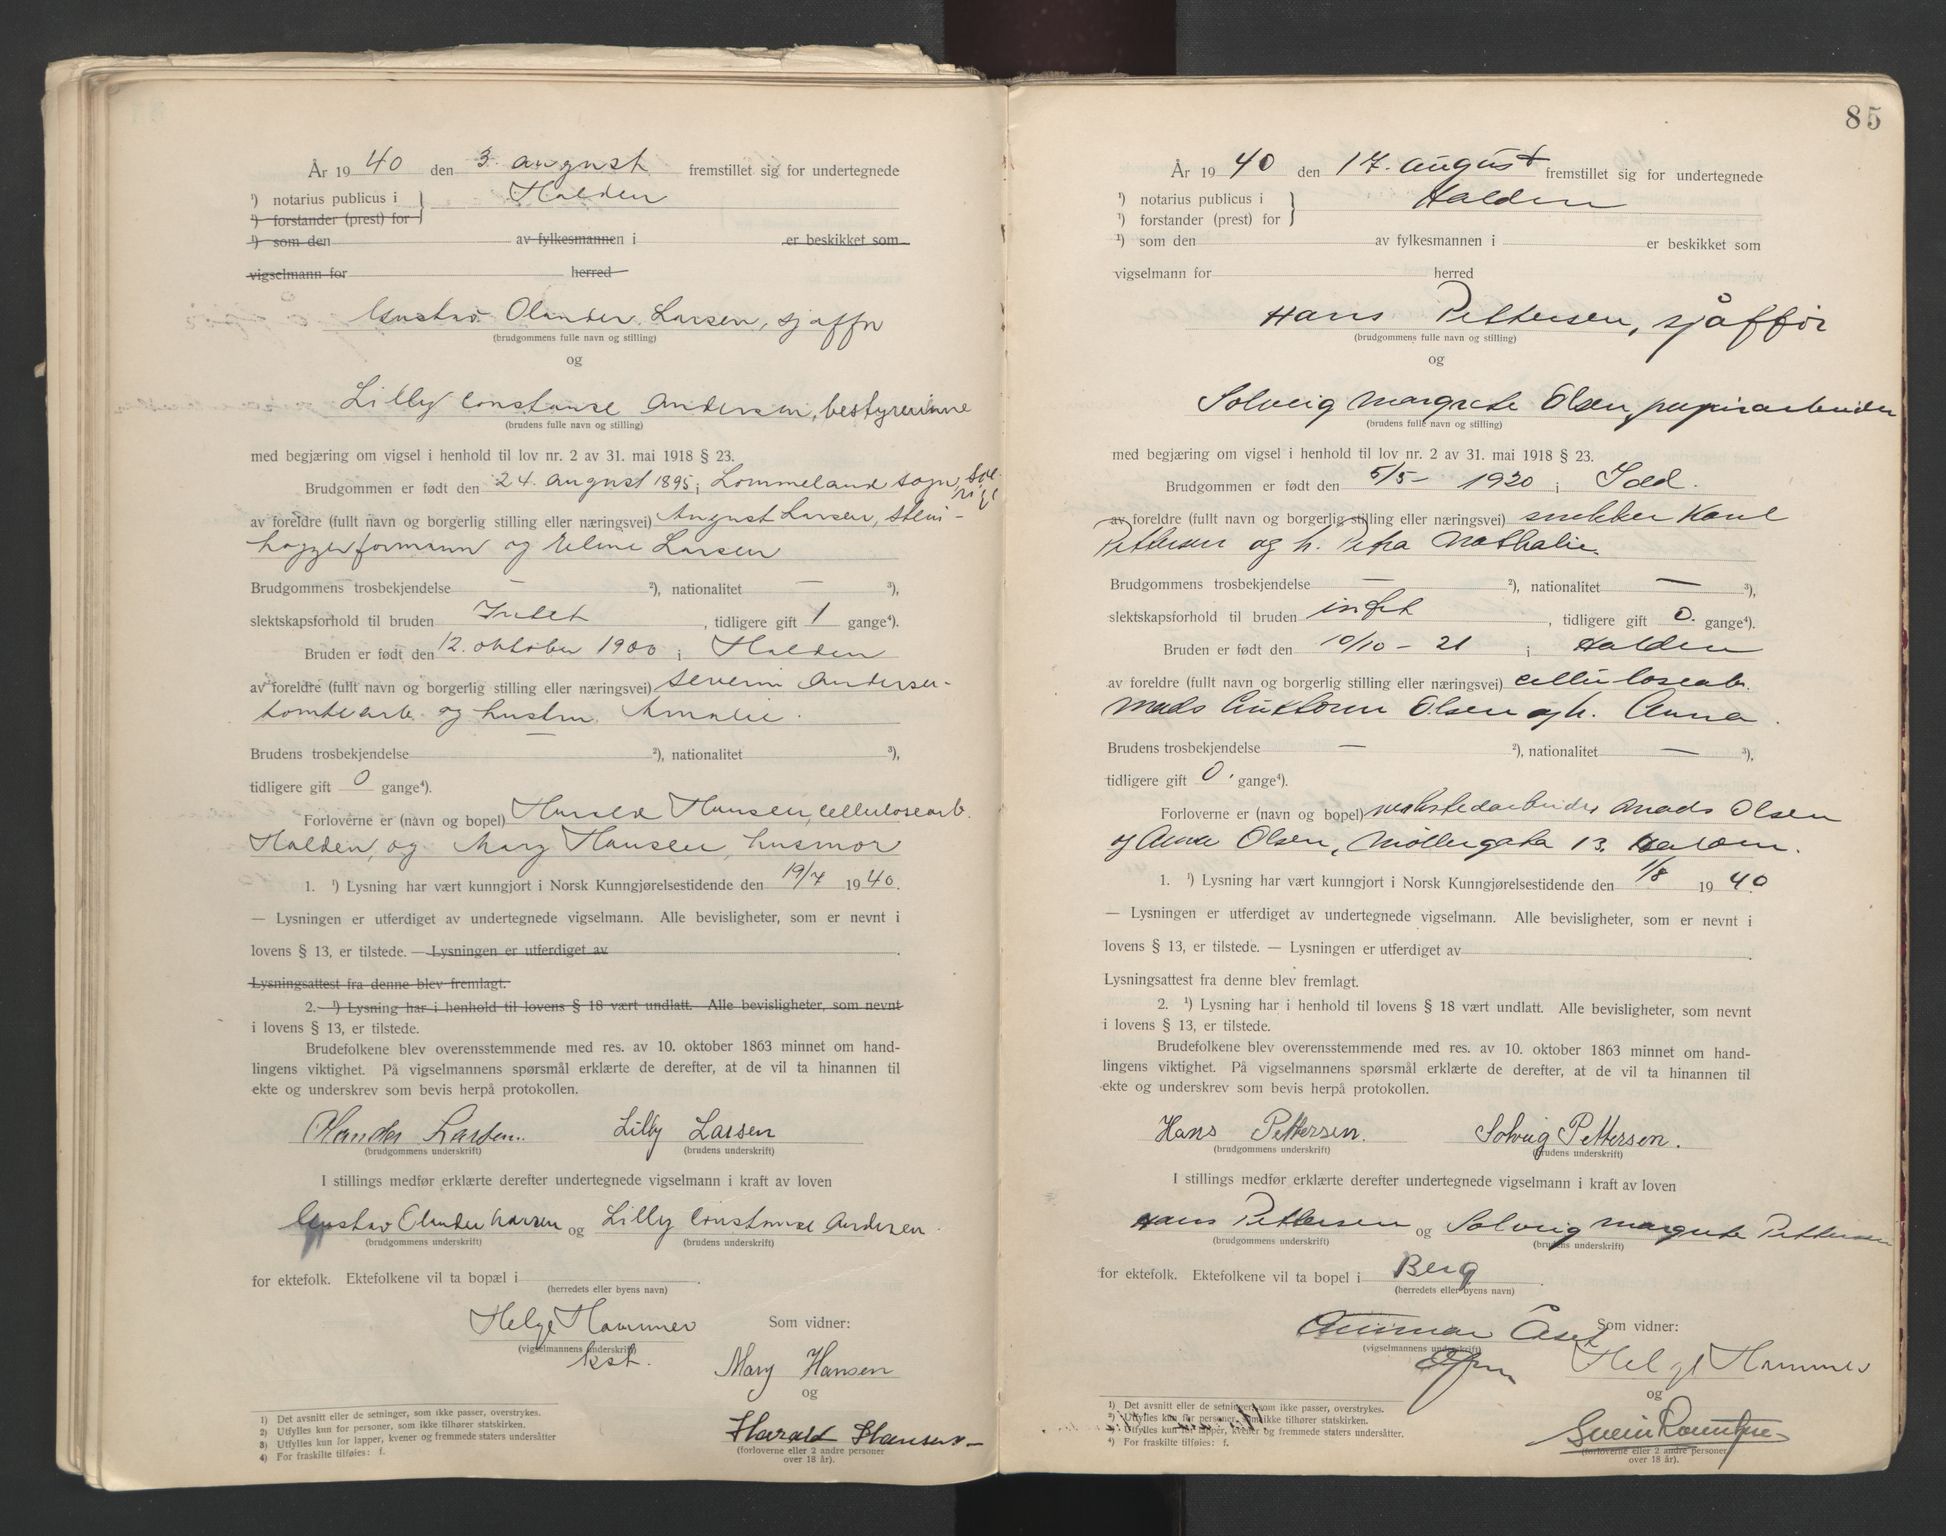 År 1940 den 3. august fremstillet sig for undertegnede
¹) notarius publicus i } Halden
¹) forstander (prest) for
¹) som den av fylkesmannen i er beskikket som
vigselmann for herred
Gustav Olander Larsen, sjåffør
(brudgommens fulle navn og stilling)
og
Lilly Constanse Andersen, bestyrerinne
(brudens fulle navn og stilling)
med begjæring om vigsel i henhold til lov nr. 2 av 31. mai 1918 § 23.
Brudgommen er født den 24. august 1895 i Lommeland sogn,
av foreldre (fullt navn og borgerlig stilling eller næringsvei) August Larsen, sten-
huggerformann og Larsen
Brudgommens trosbekjendelse — ²), nationalitet — ³),
slektskapsforhold til bruden Intet, tidligere gift 1 gange⁴).
Bruden er født den 12. oktober 1900 i Halden
av foreldre (fullt navn og borgerlig stilling eller næringsvei) Severin Andersen
tomtearb. og hustru Amalie.
Brudens trosbekjendelse — ²), nationalitet — ³),
tidligere gift 0 gange⁴).
Forloverne er (navn og bopel) Harald Hansen, cellulosearb.
Halden, og Mary Hansen, husmor
1. ¹) Lysning har vært kunngjort i Norsk Kunngjørelsestidende den 19/7 1940.
— Lysningen er utferdiget av undertegnede vigselmann. Alle bevisligheter, som er nevnt i
lovens § 13, er tilstede. — Lysningen er utferdiget av
Lysningsattest fra denne blev fremlagt.
2. ¹) Lysning har i henhold til lovens § 18 vært undlatt. Alle bevisligheter, som nevnt
i lovens § 13, er tilstede.
Brudefolkene blev overensstemmende med res. av 10. oktober 1863 minnet om hand-
lingens viktighet. På vigselmannens spørsmål erklærte de derefter, at de vil ta hinannen til
ekte og underskrev som bevis herpå protokollen.
Olander Larsen. Lilly Larsen
(brudgommens underskrift) (brudens underskrift)
I stillings medfør erklærte derefter undertegnede vigselmann i kraft av loven
Gustav Olander Larsen og Lilly Constanse Andersen.
(brudgommens underskrift) (brudens underskrift)
for ektefolk. Ektefolkene vil ta bopæl i
(herredets eller byens navn)
Helge Hammer Som vidner:
(vigselmannens underskrift)
kst. Mary Hansen
og
Harald Hansen
(forloverne eller 2 andre personer
over 18 år).
1) Det avsnitt eller de setninger, som ikke passer, overstrykes.
2) Utfylles kun for personer, som ikke tilhører statskirken.
3) Utfylles kun for lapper, kvener og fremmede staters undersåtter
4) For fraskilte tilføies: f.
85
År 1940 den 17. august fremstillet sig for undertegnede
¹) notarius publicus i } Halden
¹) forstander (prest) for
¹) som den av fylkesmannen i er beskikket som
vigselmann for herred
Hans Pettersen, sjåffør
(brudgommens fulle navn og stilling)
og
Solveig Margrete Olsen, papirarbeider
(brudens fulle navn og stilling)
med begjæring om vigsel i henhold til lov nr. 2 av 31. mai 1918 § 23.
Brudgommen er født den 5/5- 1920 i Idd.
av foreldre (fullt navn og borgerlig stilling eller næringsvei) snekker Karl
Pettersen og h. Petra Nathalie.
Brudgommens trosbekjendelse — ²), nationalitet — ³),
slektskapsforhold til bruden intet, tidligere gift 0. gange⁴).
Bruden er født den 10/10 - 21 i Halden
av foreldre (fullt navn og borgerlig stilling eller næringsvei) cellulosearb.
Mads Olsen og h. Anna.
Brudens trosbekjendelse — ²), nationalitet — ³),
tidligere gift 0. gange⁴).
Forloverne er (navn og bopel) verkstedarbeider Mads Olsen
og Anna Olsen, Møllergata 13, Halden.
1. ¹) Lysning har vært kunngjort i Norsk Kunngjørelsestidende den 1/8 1940
— Lysningen er utferdiget av undertegnede vigselmann. Alle bevisligheter, som er nevnt i
lovens § 13, er tilstede. — Lysningen er utferdiget av
Lysningsattest fra denne blev fremlagt.
2. ¹) Lysning har i henhold til lovens § 18 vært undlatt. Alle bevisligheter, som nevnt
i lovens § 13, er tilstede.
Brudefolkene blev overensstemmende med res. av 10. oktober 1863 minnet om hand-
lingens viktighet. På vigselmannens spørsmål erklærte de derefter, at de vil ta hinannen til
ekte og underskrev som bevis herpå protokollen.
Hans Pettersen. Solveig Pettersen.
(brudgommens underskrift) (brudens underskrift)
I stillings medfør erklærte derefter undertegnede vigselmann i kraft av loven
Hans Pettersen og Solveig Margrete Pettersen
(brudgommens underskrift) (brudens underskrift)
for ektefolk. Ektefolkene vil ta bopel i Berg.
(herredets eller byens navn)
Som vidner:
(vigselmannens underskrift)
Helge Hammer
og
Svein
(forloverne eller 2 andre personer
over 18 år).
¹) Det avsnitt eller de setninger, som ikke passer, overstrykes.
²) Utfylles kun for personer, som ikke tilhører statskirken.
³) Utfylles kun for lapper, kvener og fremmede staters undersåtter
⁴) For fraskilte tilføies: f.